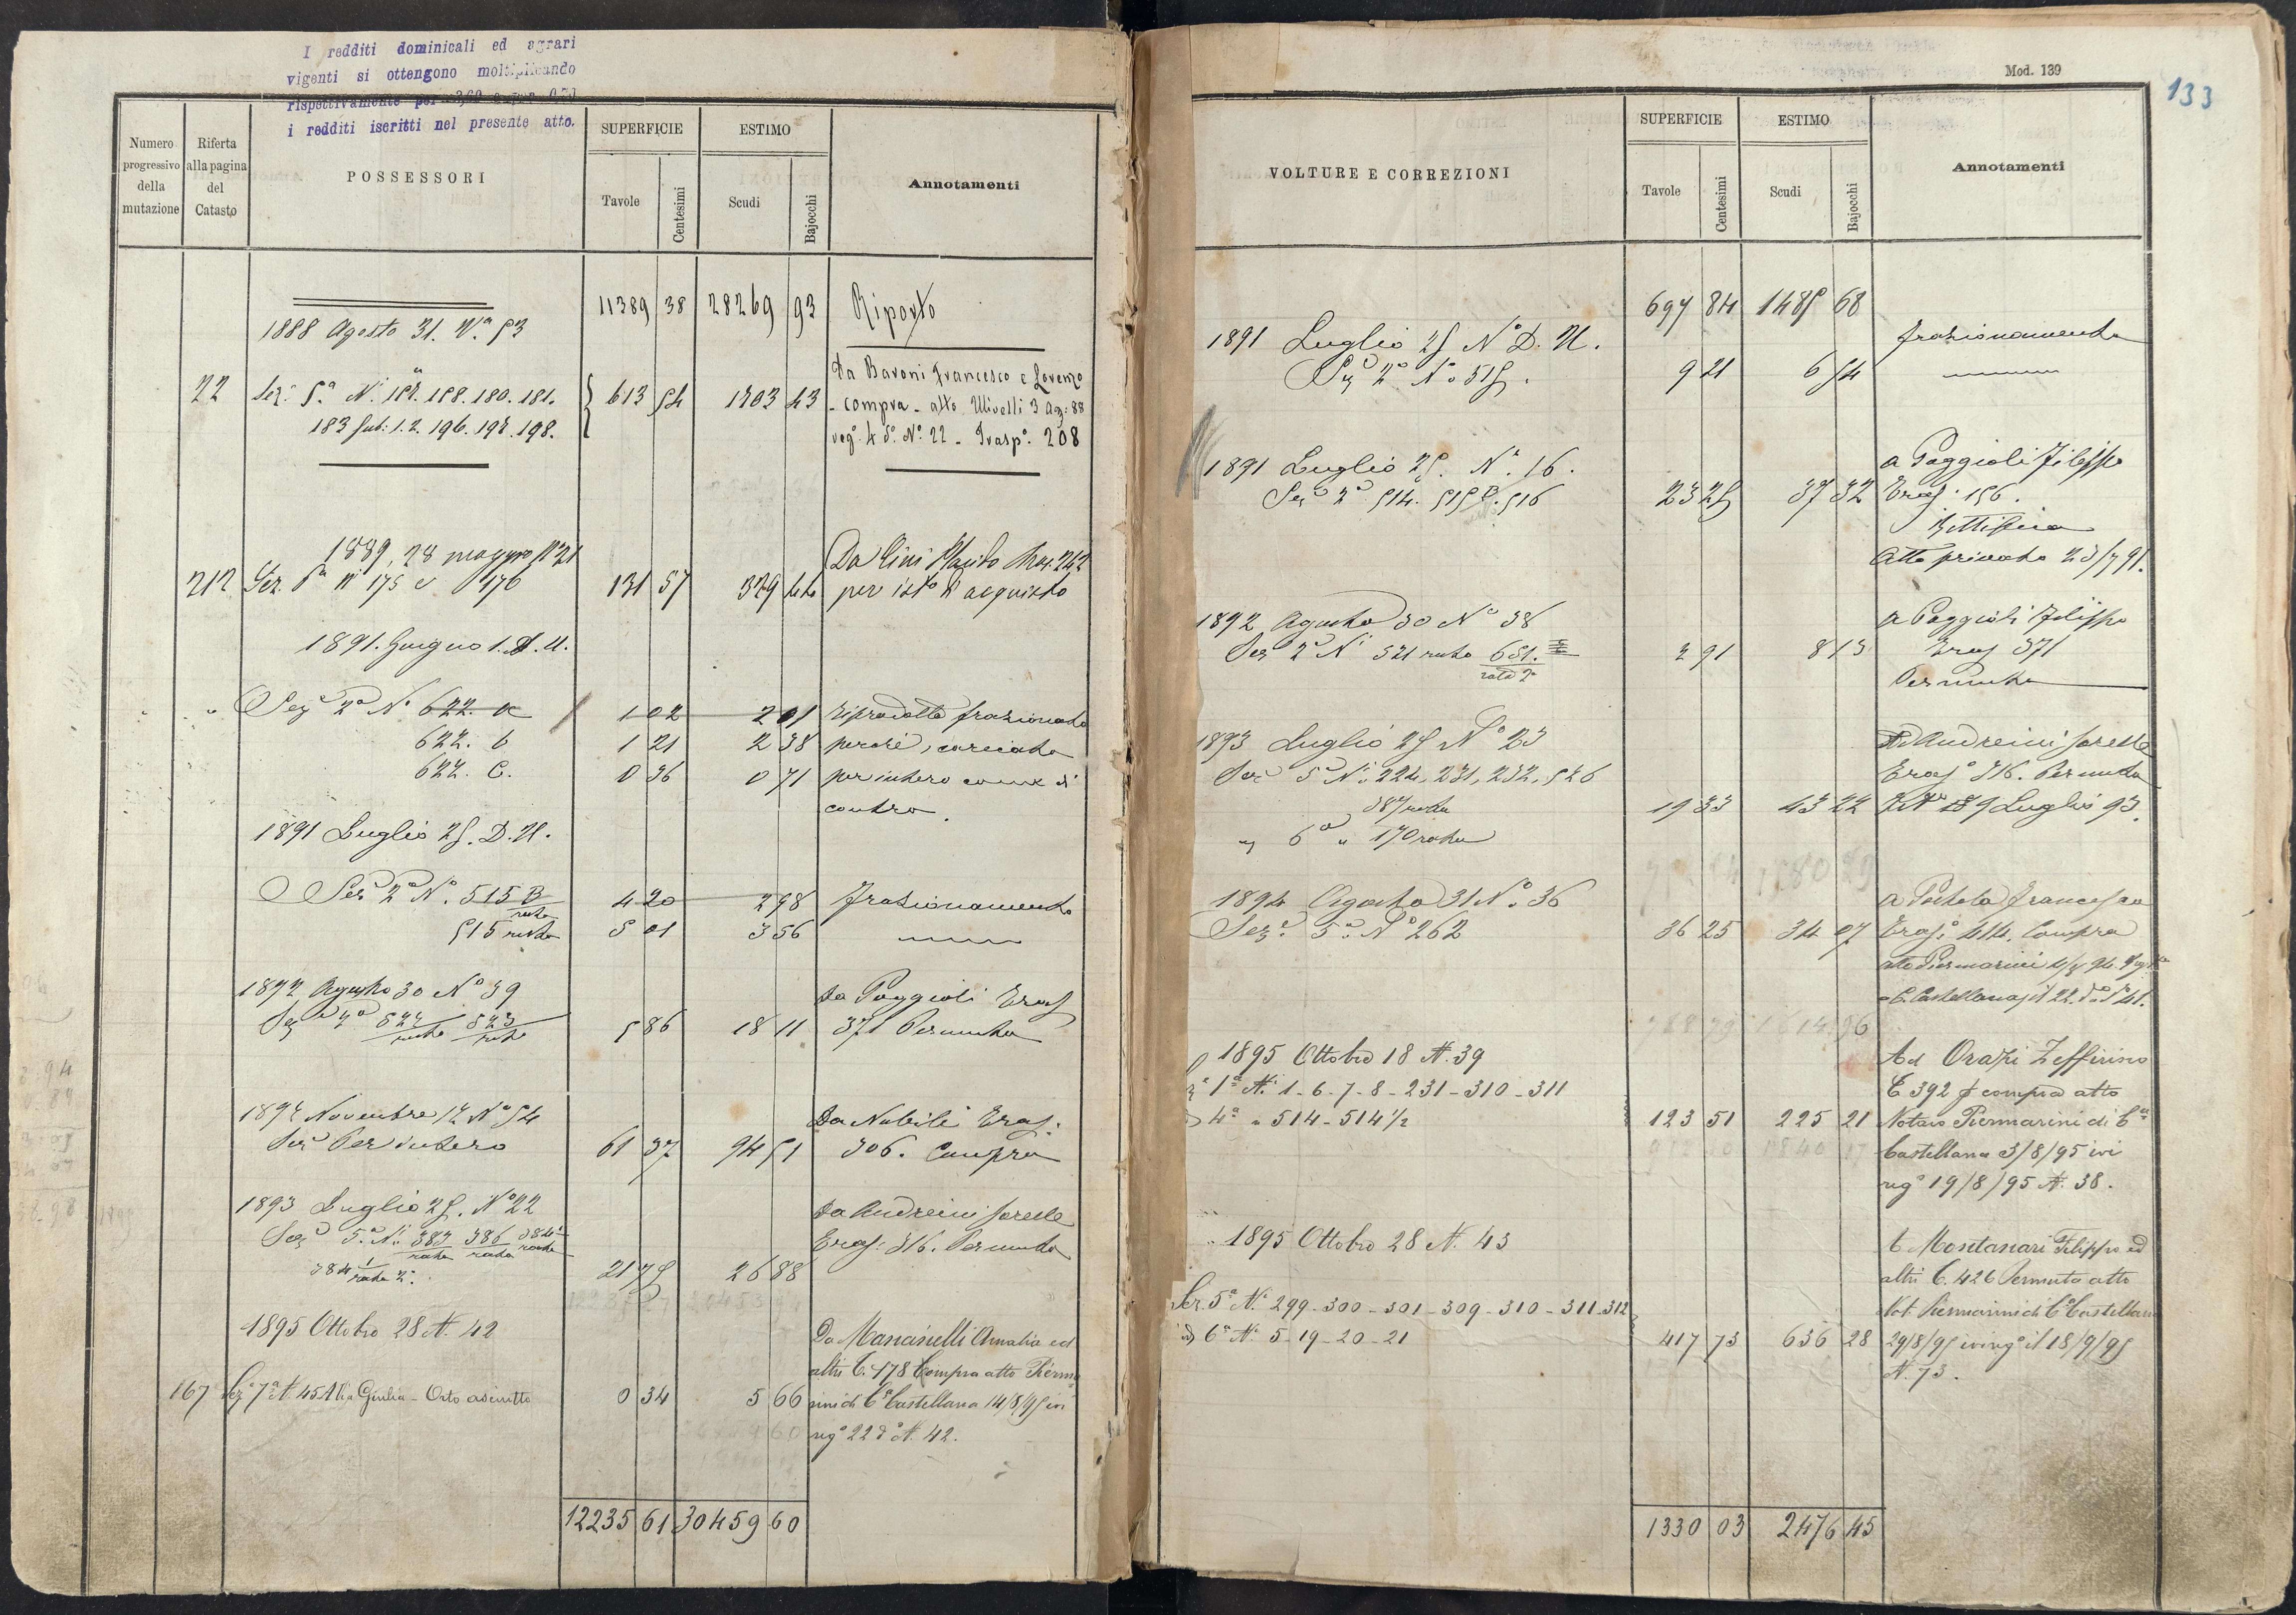 I redditi dominicali ed agrari
vigenti si ottengono moltiplicando
rispettivamente per
i redditi iscritti nel presente atto.
Numero progressivo della mutazione
Riferta alla pagina del Catasto
POSSESSORI
SUPERFICIE
Tavole
Centesimi
ESTIMO
Scudi
Bajocchi
Annotamenti
11389 38 28269 93 Riporto
1888 Agosto 31. N.º 53
22 Sez. 5ª N. 158. 180. 181.
183 sub: 1. 2. 196. 197. 198.
613 54 1703 43
Da Baroni Francesco e Lorenzo
- compra - atto Ulivelli 3 Ag: 88
reg. 4 dº. Nº. 22 - Trasp. 208
1889, 28 maggio Nº 21
212 Sez. Nⁱ 175 e 176 131 57 329 44
Da Cini
per isto d'acquisto
1891. Giugno 1. D. U.
Sezª 2ª Nº 622. a 1 02 2 01 riprodotta frazionata
622. b 1 21 2 38 perchè, caricata
622. C. 0 36 0 71 per intero come di
contro.
1891 Luglio 25. D. U.
Sezª 2ª Nº. 515 B rata 4 20 2 98 Frazionamento
515 resto 5 01 3 56
1892 Agosto 30 Nº 39
Sez 2ª 522 resto 523 resto 5 86 18 11
Da Poggioli Trasp
371 Permuta
1892 Novembre 12 Nº 54
Sezª Per intero 61 37 94 51
Da Nobili Trasp:
306. Compra
1893 Luglio 25. Nº 22
Sezª 5ª Nⁱ 383 rata 386 rata 384 rata
384 rata 2ª. 21 75 26 88
Da Andreini Oreste
Trasp: 316. Permuta
1895 Ottobre 28 N. 42
167 Sezª 7ª N. 45 Via Giulia - Orto asciutto 0 34 5 66
Da Mancinelli Amalia ed
altri C. 178 Compra atto Pierma
rini di Cª Castellana 14/8/95 ivi
regº 22 dº N. 42.
12235 61 30459 60
Mod. 139
133
VOLTURE E CORREZIONI
SUPERFICIE
Tavole
Centesimi
ESTIMO
Scudi
Bajocchi
Annotamenti
697 84 1485 68
1891 Luglio 25 Nº D. U.
Sezª 2ª Nº 515. 9 21 6 54
frazionamento
1891 Luglio 25. Nº. 16.
Sezª 2ª 514. 515 B. 516 23 25 37 32
a Poggioli Filippo
Trasp. 156.
Rettifica
Atto privato 23/7 91.
1892 Agosto 30 Nº 38
Sez 2ª Nⁱ 521 resto 651. rata 2ª 2 91 8 13
a Poggioli Filippo
Trasp 371
Permuta
1893 Luglio 25 Nº 23
Sezª 5ª Nⁱ. 224, 231, 232, 526
387 rata 19 33 43 22
" 6ª " 170 rata
Ad Andreini Oreste
Trasp.º 316. Permuta
9 Luglio 93.
1894 Agosto 31 Nº. 36
Sezª. 5ª. Nº 262 36 25 34 07
a Francesco
Trasp. 414. Compra
atto Piermarini
C. Castellana il 22 dº Nº 41.
1895 Ottobre 18 N. 39
1ª Nⁱ 1 - 6 - 7 - 8 - 231 - 310 - 311
4ª " 514 - 514 1/2 123 51 225 21
Ad Orazi Zeffirino
C 392 p compra atto
Notaio Piermarini di Cª
Castellana 3/8/95 ivi
regº 19/8/95 N. 38.
1895 Ottobre 28 N. 43
Sez. 5ª Nⁱ 299 - 300 - 301 - 309 - 310 - 311 - 312
6ª Nⁱ 5 - 19 - 20 - 21 417 73 636 28
A Montanari Filippo ed
altri C. 426 Permuta atto
Not. Piermarini di Cª Castellana
29/8/95 ivi regº il 18/9/95
N. 73.
1330 03 2476 45